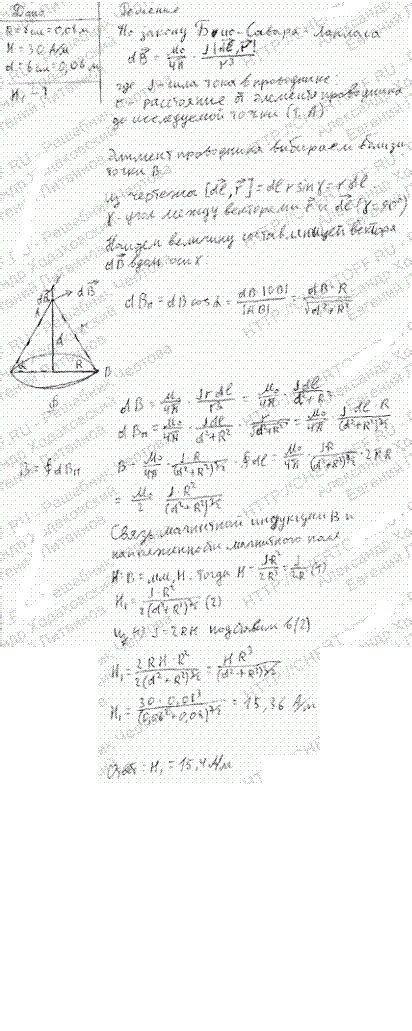 Дано
R=8см=0,08 м
H = 30 А/м
d=6см=0,06 м
H₁ - ?
Решение
По закону Био-Савара-Лапласа
dB⃗ = μ₀/4π · I[dl⃗, r⃗]/r³
где I - сила тока в проводнике
r - расстояние от элемента проводника
до исследуемой точки (т. А)
Элемент проводника выбираем вблизи
точки В
из чертежа [dl⃗, r⃗] = dl r sinγ = r dl
γ - угол между векторами r⃗ и dl⃗ (γ=90°)
Найдем величину составляющей вектора
dB⃗ вдоль оси х
dBₙ = dB cosα = dB|OB|/|AB| = dB·R/√(d²+R²)
dB⃗
A
d
r
R
B
dB = μ₀/4π · I r dl/r³ = μ₀/4π · I dl/(d²+R²)
dBₙ = μ₀/4π · I dl/(d²+R²) · R/√(d²+R²) = μ₀/4π · I dl R/(d²+R²)^3/2
B = ∮ dBₙ
B = μ₀/4π · IR/(d²+R²)^3/2 · ∮dl = μ₀/4π · IR/(d²+R²)^3/2 · 2πR
= μ₀/2 · I R²/(d²+R²)^3/2
Связь магнитной индукции B и
напряженности магнитного поля
B = μμ₀H. тогда H = IR²/2R³ = I/2R (1)
H₁ = I·R²/2(d²+R²)^3/2 (2)
из (1) I = 2RH подставим в (2)
H₁ = 2RH·R²/2(d²+R²)^3/2 = HR³/(d²+R²)^3/2
H₁ = 30·0,08³/(0,06²+0,08²)^3/2 = 15,36 А/м
Ответ: H₁ = 15,4 А/м